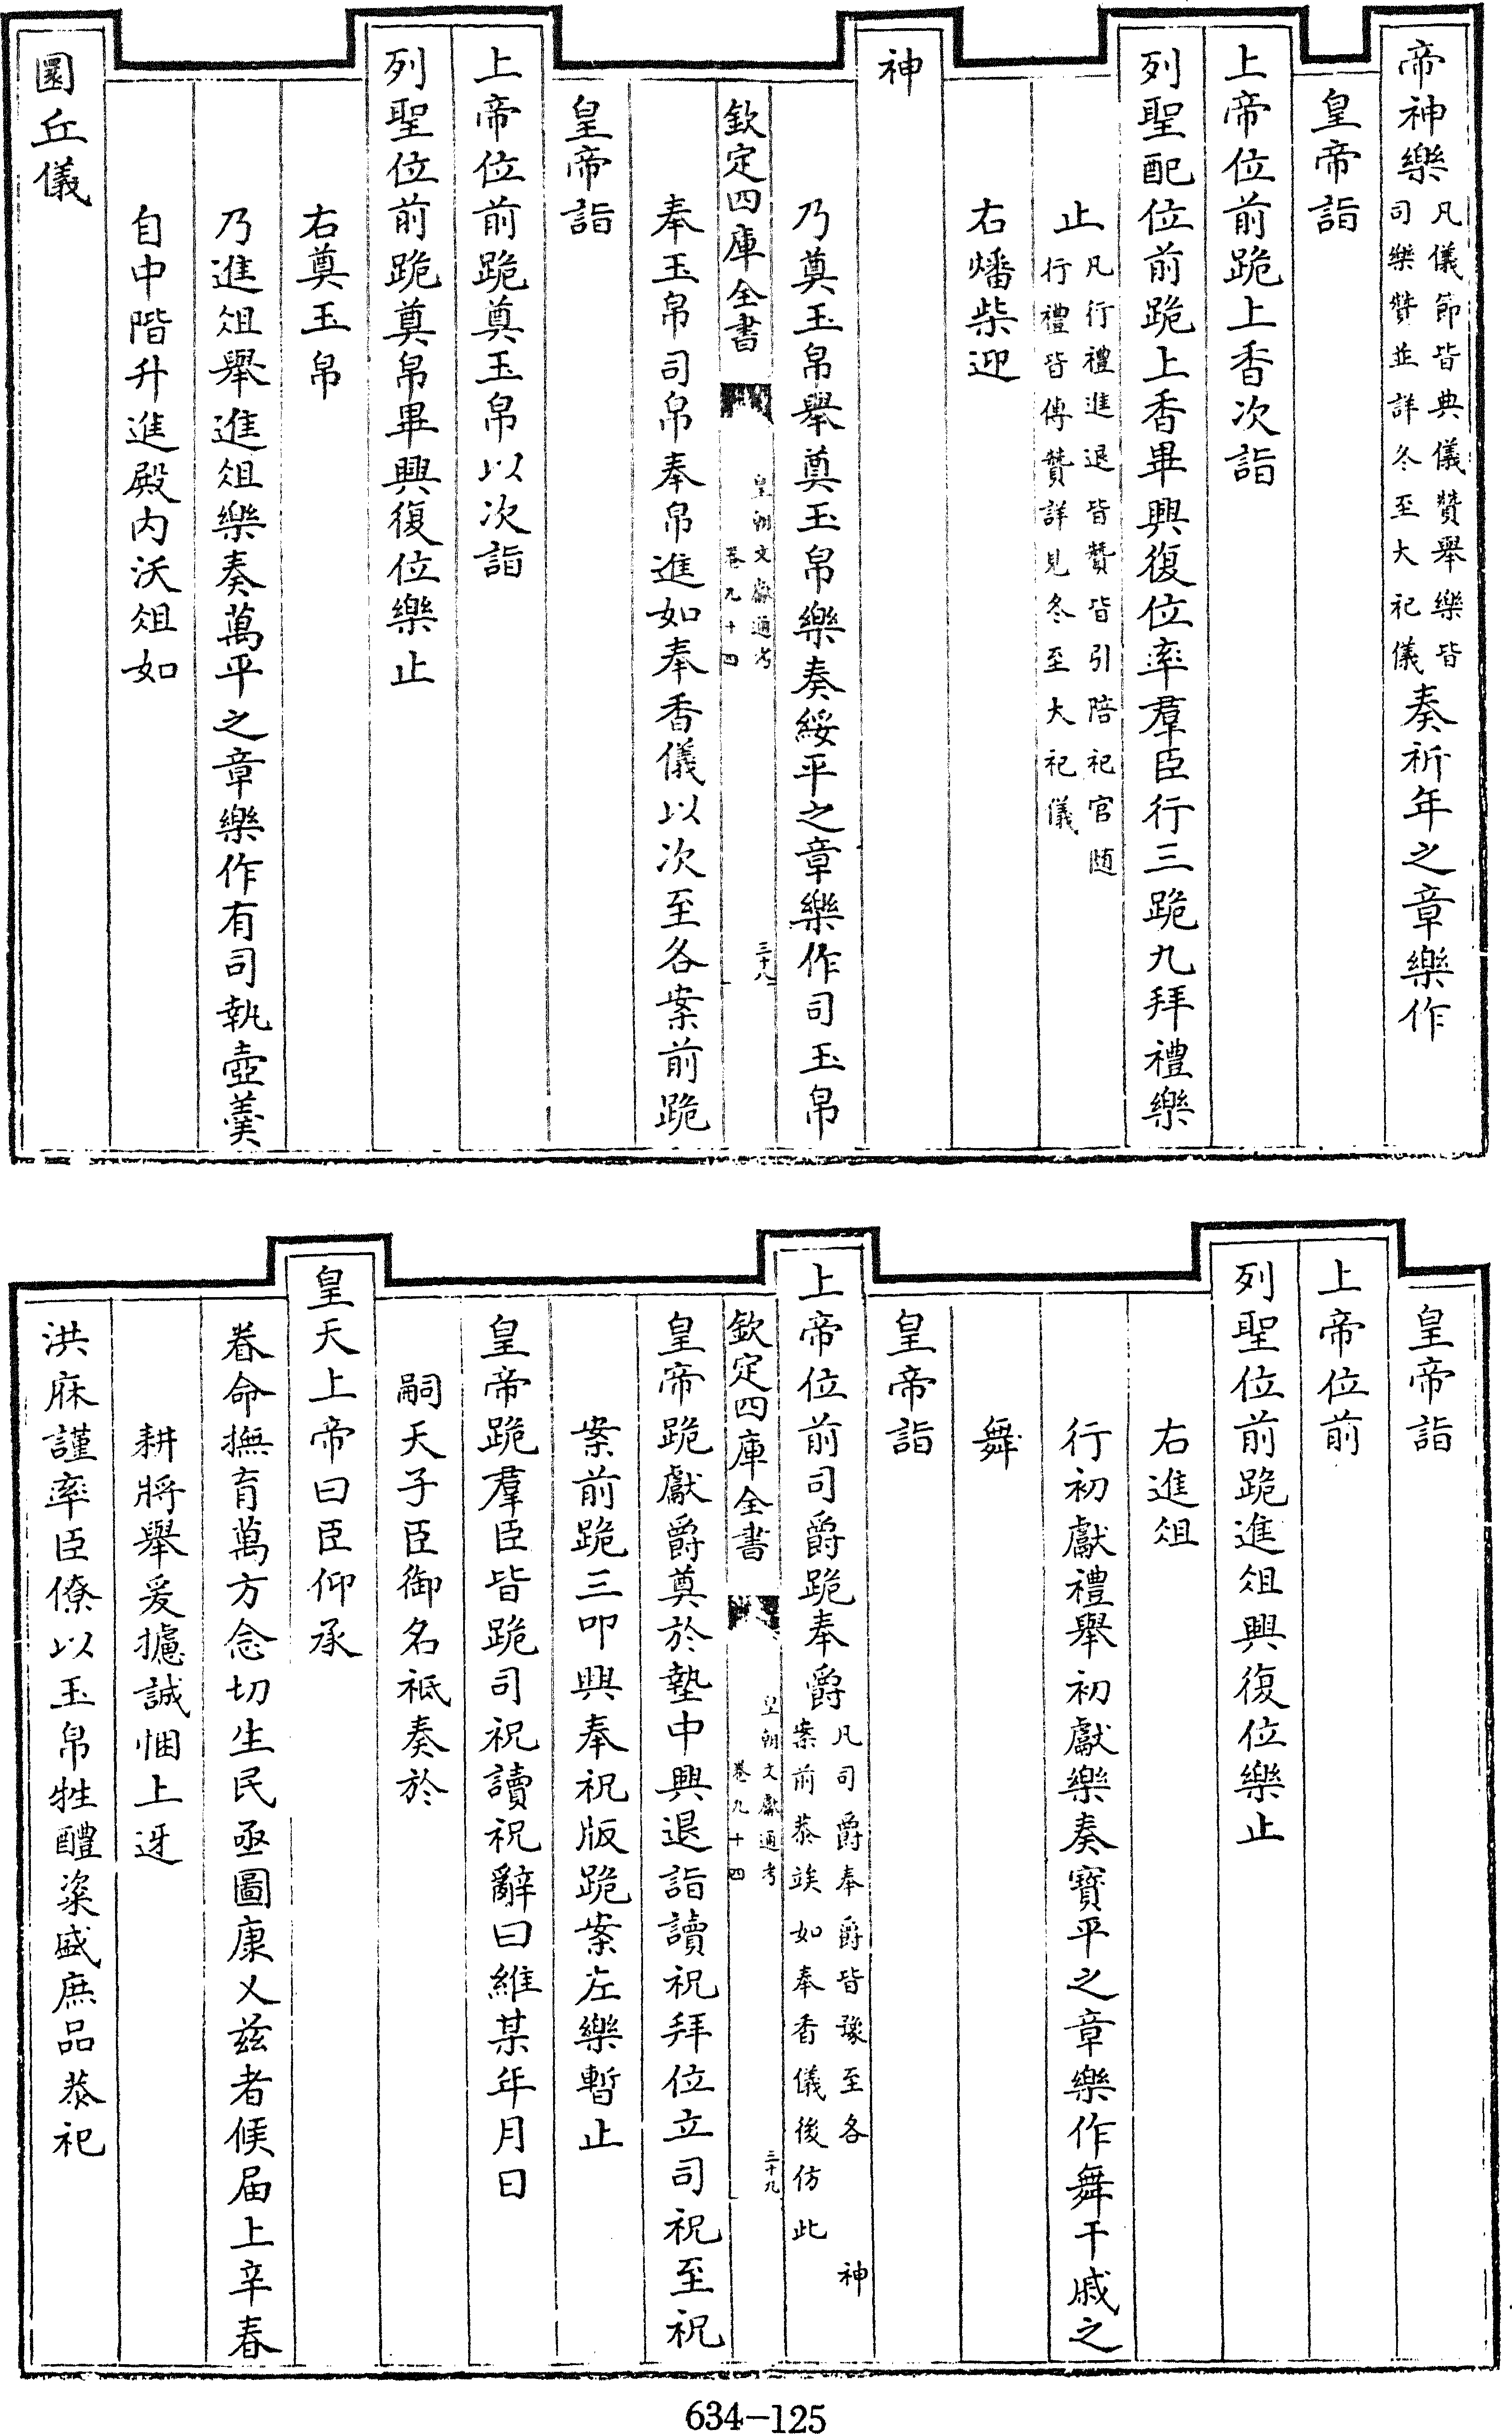 帝神樂凡儀節皆典儀贊舉樂皆司樂贊並詳冬至大祀儀奏祈年之章樂作
皇帝詣
上帝位前跪上香次詣
列聖配位前跪上香畢興復位率羣臣行三跪九拜禮樂
止凡行禮進退皆贊皆引陪祀官隨行禮皆傳贊詳見冬至大祀儀
右燔柴迎
神
乃奠玉帛舉奠玉帛樂奏綏平之章樂作司玉帛
欽定四庫全書
皇朝文獻通考
卷九十四
三十八
奉玉帛司帛奉帛進如奉香儀以次至各案前跪
皇帝詣
上帝位前跪奠玉帛以次詣
列聖位前跪奠帛畢興復位樂止
右奠玉帛
乃進俎舉進俎樂奏萬平之章樂作有司執壺羹
自中階升進殿内沃俎如
圜丘儀
皇帝詣
上帝位前
列聖位前跪進俎興復位樂止
右進俎
行初獻禮舉初獻樂奏寳平之章樂作舞干戚之
舞
皇帝詣
上帝位前司爵跪奉爵凡司爵奉爵皆豫至各神案前恭竢如奉香儀後仿此
欽定四庫全書
皇朝文獻通考
卷九十四
三十九
皇帝跪獻爵奠於墊中興退詣讀祝拜位立司祝至祝
案前跪三叩興奉祝版跪案左樂暫止
皇帝跪羣臣皆跪司祝讀祝辭曰維某年月日
嗣天子臣御名祗奏於
皇天上帝曰臣仰承
眷命撫育萬方念切生民亟圖康乂兹者候届上辛春
耕將舉爰攄誠悃上迓
洪庥謹率臣僚以玉帛牲醴粢盛庶品恭祀
634-125